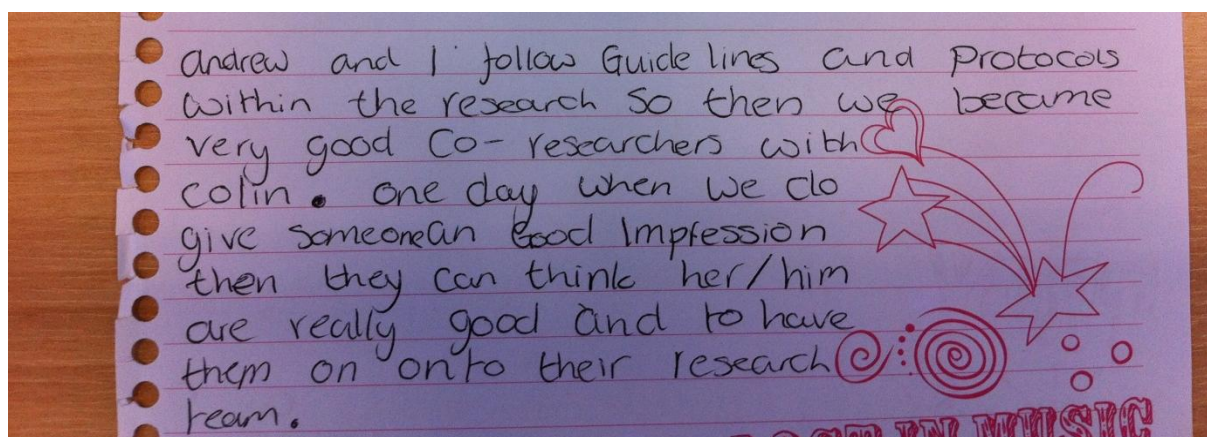 andrew and I follow Guide lines and Protocols
within the research So then we became
very good Co-researchers with
colin. one day when we do
give someone an Good Impression
then they can think her/him
are really good and to have
them on onto their research
team.
LOST IN MUSIC